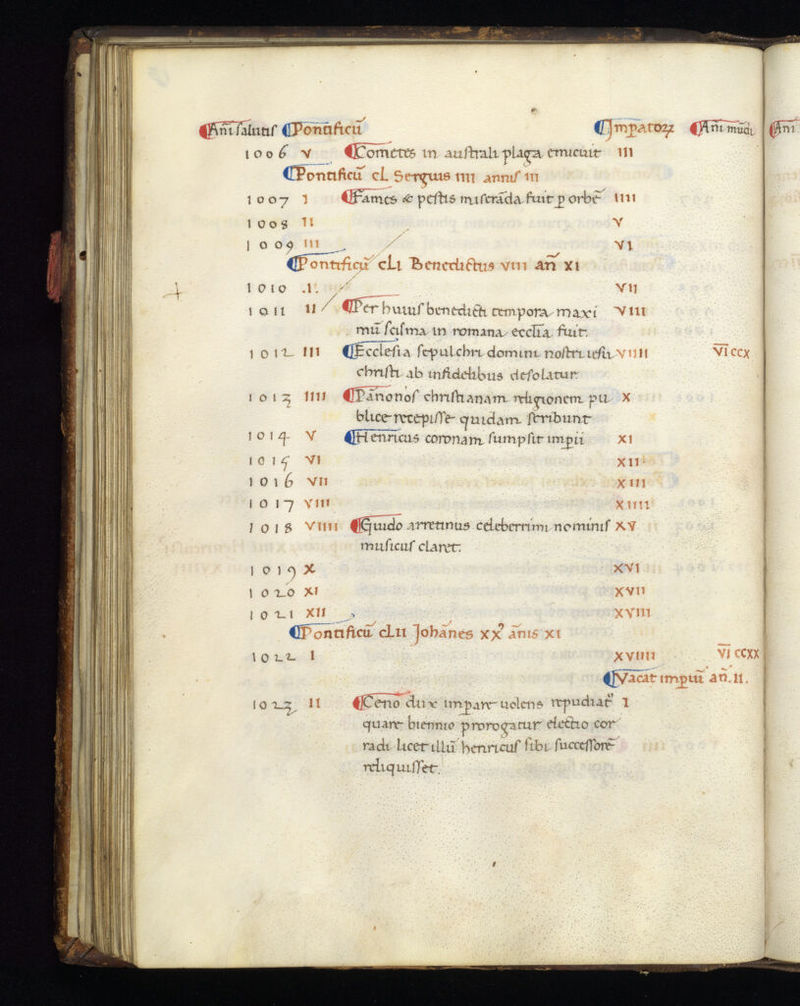 Añi salutis Pontificū Impatoꝝ Añi mūdi Ani
1006 V Cometes in australi plaga emicuit III
Pontificū cL Sergius IIII annis III
1007 I Fames & pestis miserāda fuit p orbē IIII
1008 II V
1009 III VI
Pontificū cLI Benedictus VIII añ XI
1010 .I. VII
1011 II Per huius benedicti tempora maxi VIII
mū scisma in romana ecclīa fuit.
1012 III Ecclesia sepulchri domini nostri iesu VIIII V̅I̅ CCX
christi ab infidelibus desolatur
1013 IIII Panonos christianam religionem pu X
blice recepisse quidam scribunt
1014 V Henricus coronam sumpsit impii XI
1015 VI XII
1016 VII XIII
1017 VIII XIIII
1018 VIIII Guido arretinus celeberrimi nominis XV
musicus claret.
1019 X XVI
1020 XI XVII
1021 XII XVIII
Pontificū cLII Johānes XX' ānis XI
1022 I XVIIII V̅I̅ CCXX
Vacat impiū añ. II.
1023 II Ceno dux impare uolens repudiat' I
quare biennio prorogatur electio cor
radi licet illū henricus sibi successorē
reliquisset.